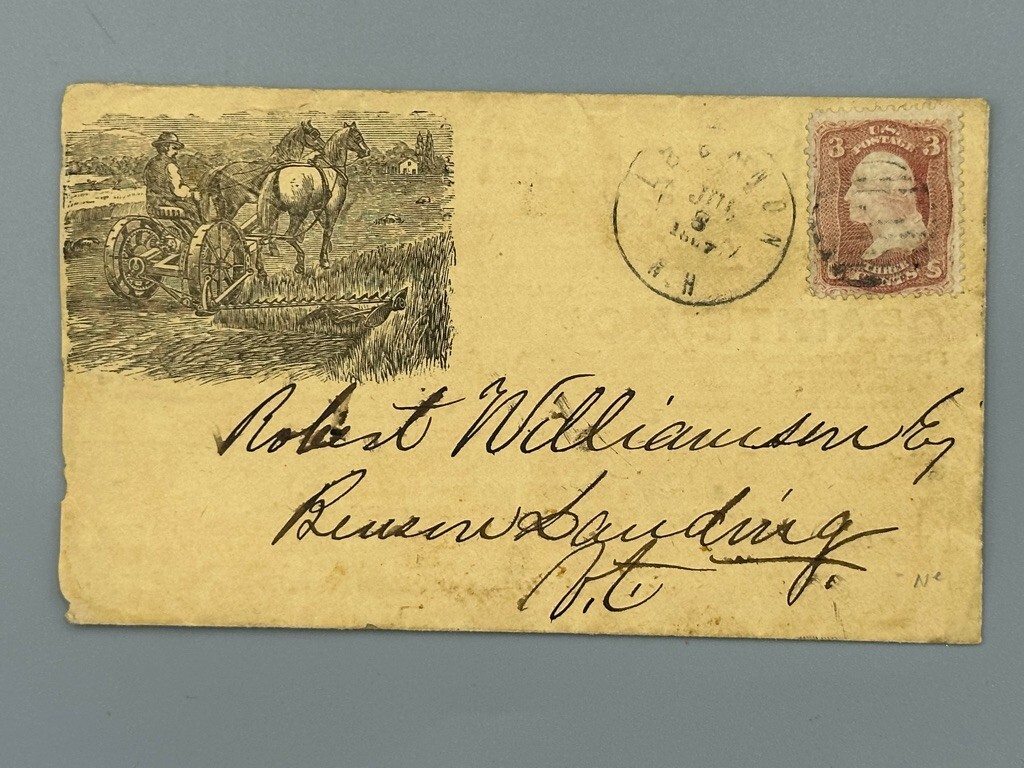 JUL
8
1867
N. H
U.S.
POSTAGE
3 3
THREE
CENTS
Robert Williamson Esq
Benson Landing
Vt.
Ne